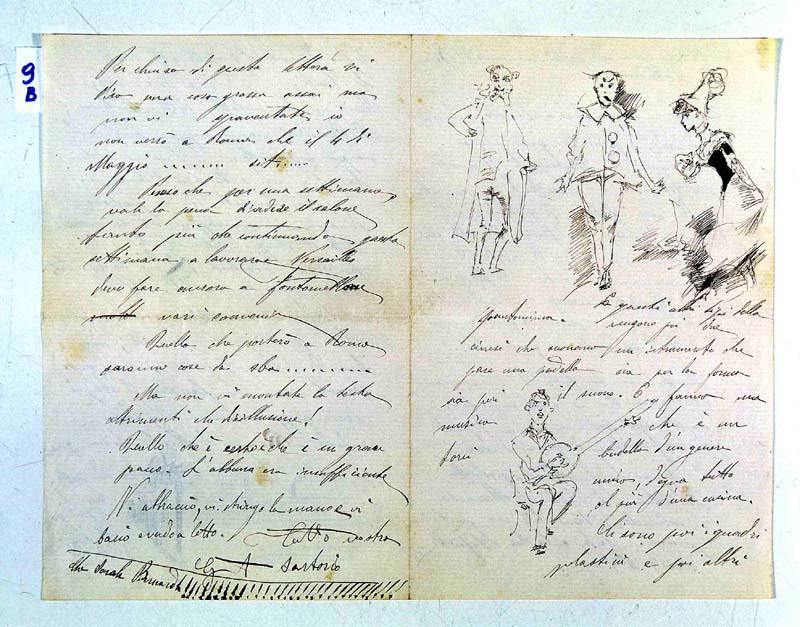 9
B
Per chiusa di questa lettera vi
dico una cosa grossa assai ma
non vi spaventate io
non verrò a Roma che il 4 di
Maggio
Penso che per una settimana
vale la pena di vedere il salone
tanto più che continuando questa
settimana a lavorare Versailles
devo fare ancora a Fontainebleau
vari
Quello che porterò a Roma
saranno cose da
Ma non vi montate la testa
altrimenti che disillusione!
Quello che è certo è che è in gran
pacco. L'albun era insufficiente
Vi abbraccio, vi stringo la mano e vi
bacio e vado a letto. Tutto vostro
G A Sartorio
che Sarah Bernardt
E questi altri tipi della
pantomima. vengono poi due
cinesi che suonano un istrumento che
pare una padella sia per la forma
sia poi il suono. E fanno una
musica che è un
budella d'un genere
unico, d'una tutto
al più d'una cucina.
Ci sono poi i quadri
plastici e poi altri